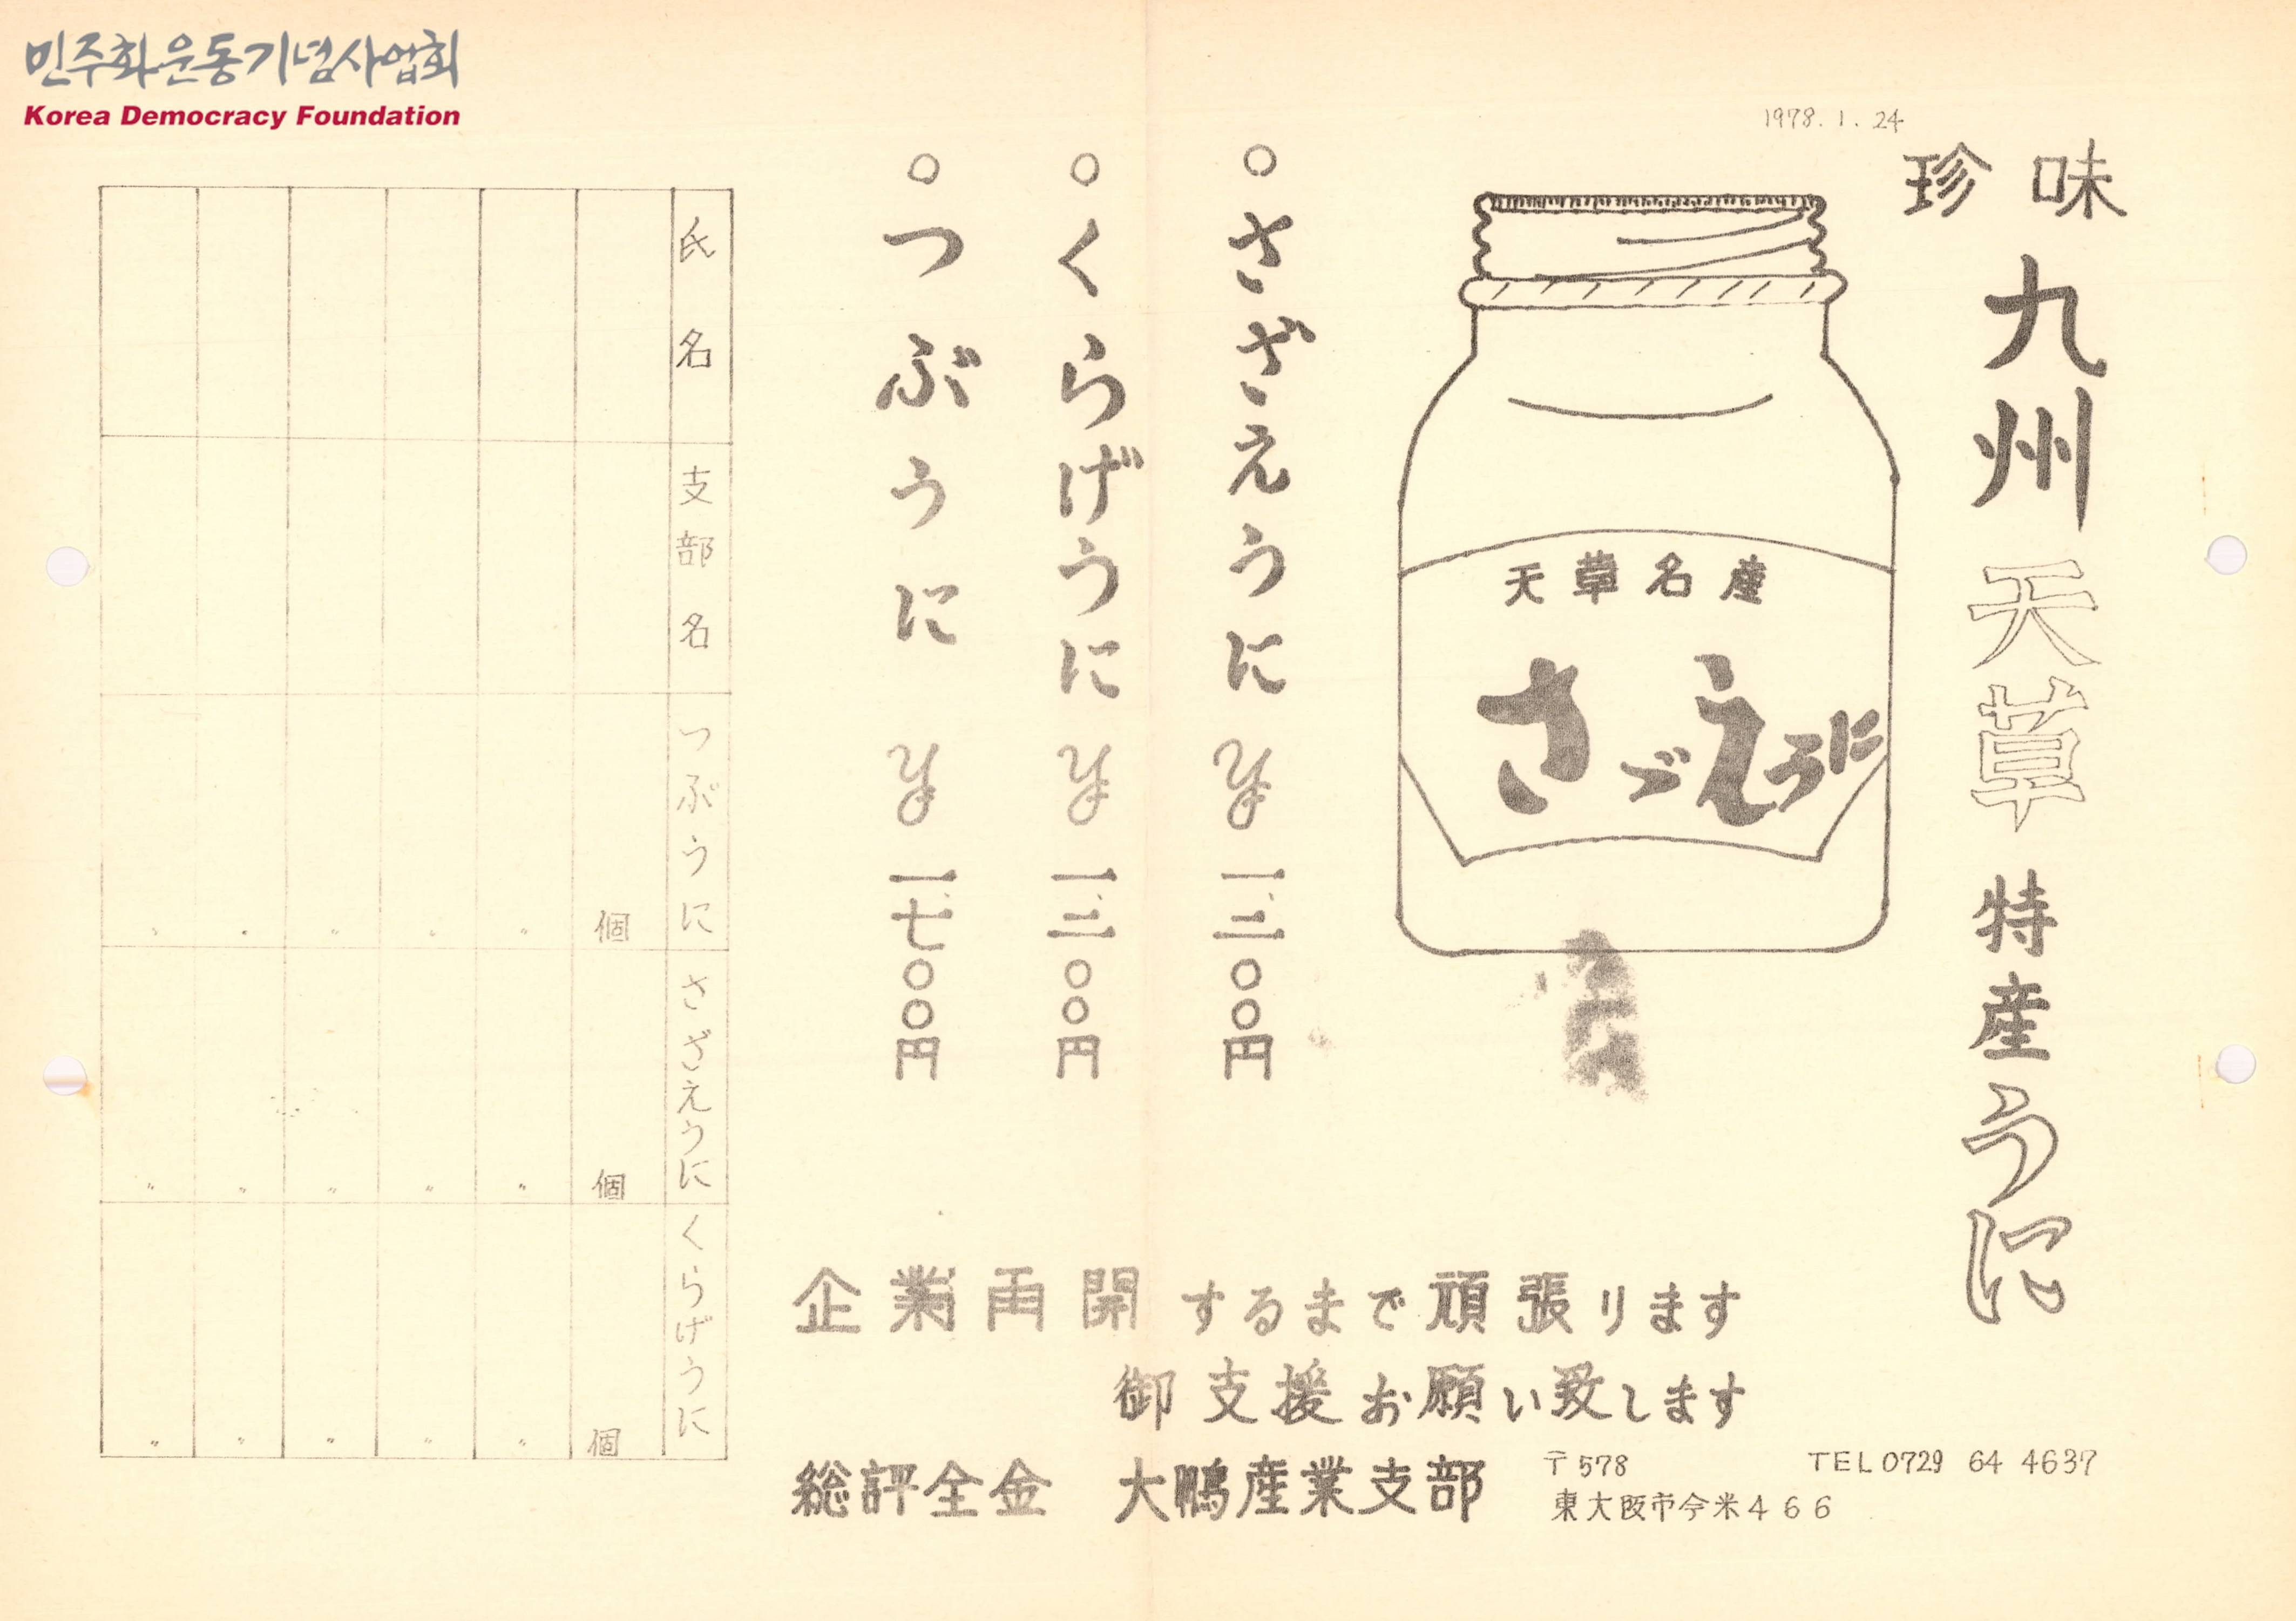 민주화운동기념사업회
Korea Democracy Foundation
1978. 1. 24
珍味
九州天草特産うに
天草名産
さゞえうに
○さざえうに ¥一、三〇〇円
○くらげうに ¥一、三〇〇円
○つぶうに ¥一、七〇〇円
企業再開するまで頑張ります
御支援お願い致します
総評全金 大鵬産業支部
〒578 TEL 0729 64 4637
東大阪市今米466
氏名 支部名 つぶうに さざえうに くらげうに
個 個 個
〃 〃 〃
〃 〃 〃
〃 〃 〃
〃 〃 〃
〃 〃 〃